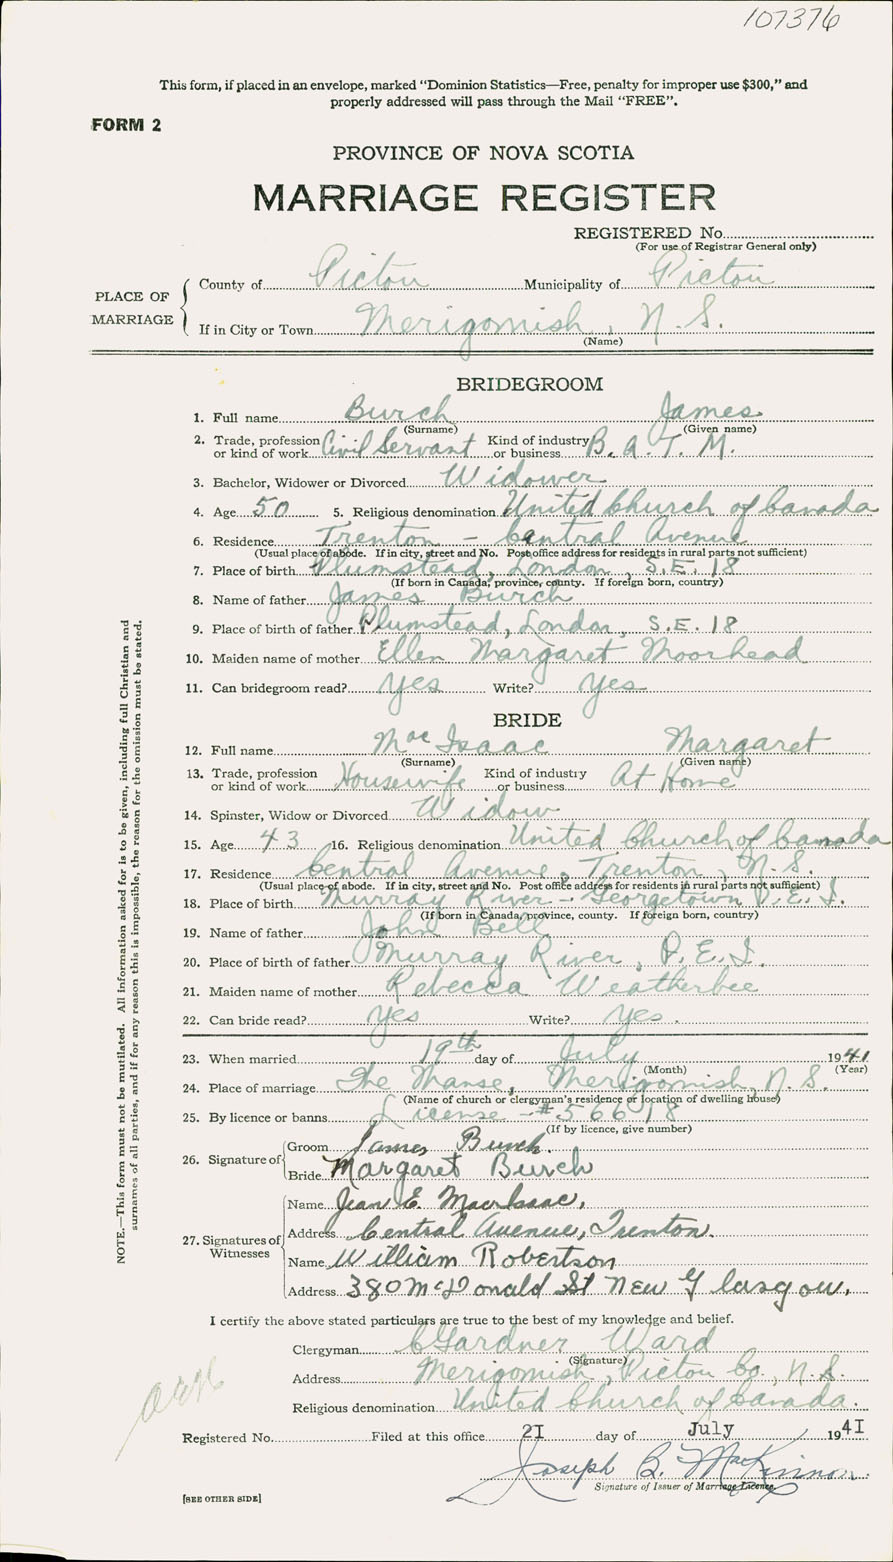 107376
This form, if placed in an envelope, marked "Dominion Statistics—Free, penalty for improper use $300," and
properly addressed will pass through the Mail "FREE".
FORM 2
PROVINCE OF NOVA SCOTIA
MARRIAGE REGISTER
REGISTERED No.
(For use of Registrar General only)
PLACE OF MARRIAGE
County of Pictou Municipality of Pictou
If in City or Town Merigomish, N.S.
(Name)
BRIDEGROOM
1. Full name Burch James
(Surname) (Given name)
2. Trade, profession or kind of work Civil Servant Kind of industry or business B.A.T.M.
3. Bachelor, Widower or Divorced Widower
4. Age 50 5. Religious denomination United Church of Canada
6. Residence Trenton - Central Avenue
(Usual place of abode. If in city, street and No. Post office address for residents in rural parts not sufficient)
7. Place of birth Plumstead, London, S.E. 18
(If born in Canada, province, county. If foreign born, country)
8. Name of father James Burch
9. Place of birth of father Plumstead, London, S.E. 18
10. Maiden name of mother Ellen Margaret Moorhead
11. Can bridegroom read? Yes Write? Yes
BRIDE
12. Full name MacIsaac Margaret
(Surname) (Given name)
13. Trade, profession or kind of work Housewife Kind of industry or business At Home
14. Spinster, Widow or Divorced Widow
15. Age 43 16. Religious denomination United Church of Canada
17. Residence Central Avenue, Trenton, N.S.
(Usual place of abode. If in city, street and No. Post office address for residents in rural parts not sufficient)
18. Place of birth Murray River - Georgetown P.E.I.
(If born in Canada, province, county. If foreign born, country)
19. Name of father John Bell
20. Place of birth of father Murray River, P.E.I.
21. Maiden name of mother Rebecca Weatherbee
22. Can bride read? Yes Write? Yes.
23. When married 19th day of July 1941
(Month) (Year)
24. Place of marriage The Manse, Merigomish, N.S.
(Name of church or clergyman's residence or location of dwelling house)
25. By licence or banns License - #56618
(If by licence, give number)
26. Signature of Groom James Burch.
Bride Margaret Burch
27. Signatures of Witnesses
Name Jean E. MacIsaac,
Address Central Avenue, Trenton.
Name William Robertson
Address 380 McDonald St New Glasgow.
I certify the above stated particulars are true to the best of my knowledge and belief.
Clergyman C Gardner Ward
(Signature)
Address Merigomish, Pictou Co., N.S.
Religious denomination United Church of Canada.
Registered No. Filed at this office 21 day of July 1941
Joseph B. MacKinnon
Signature of Issuer of Marriage Licence
[SEE OTHER SIDE]
NOTE.—This form must not be mutilated. All information asked for is to be given, including full Christian and
surnames of all parties, and if for any reason this is impossible, the reason for the omission must be stated.